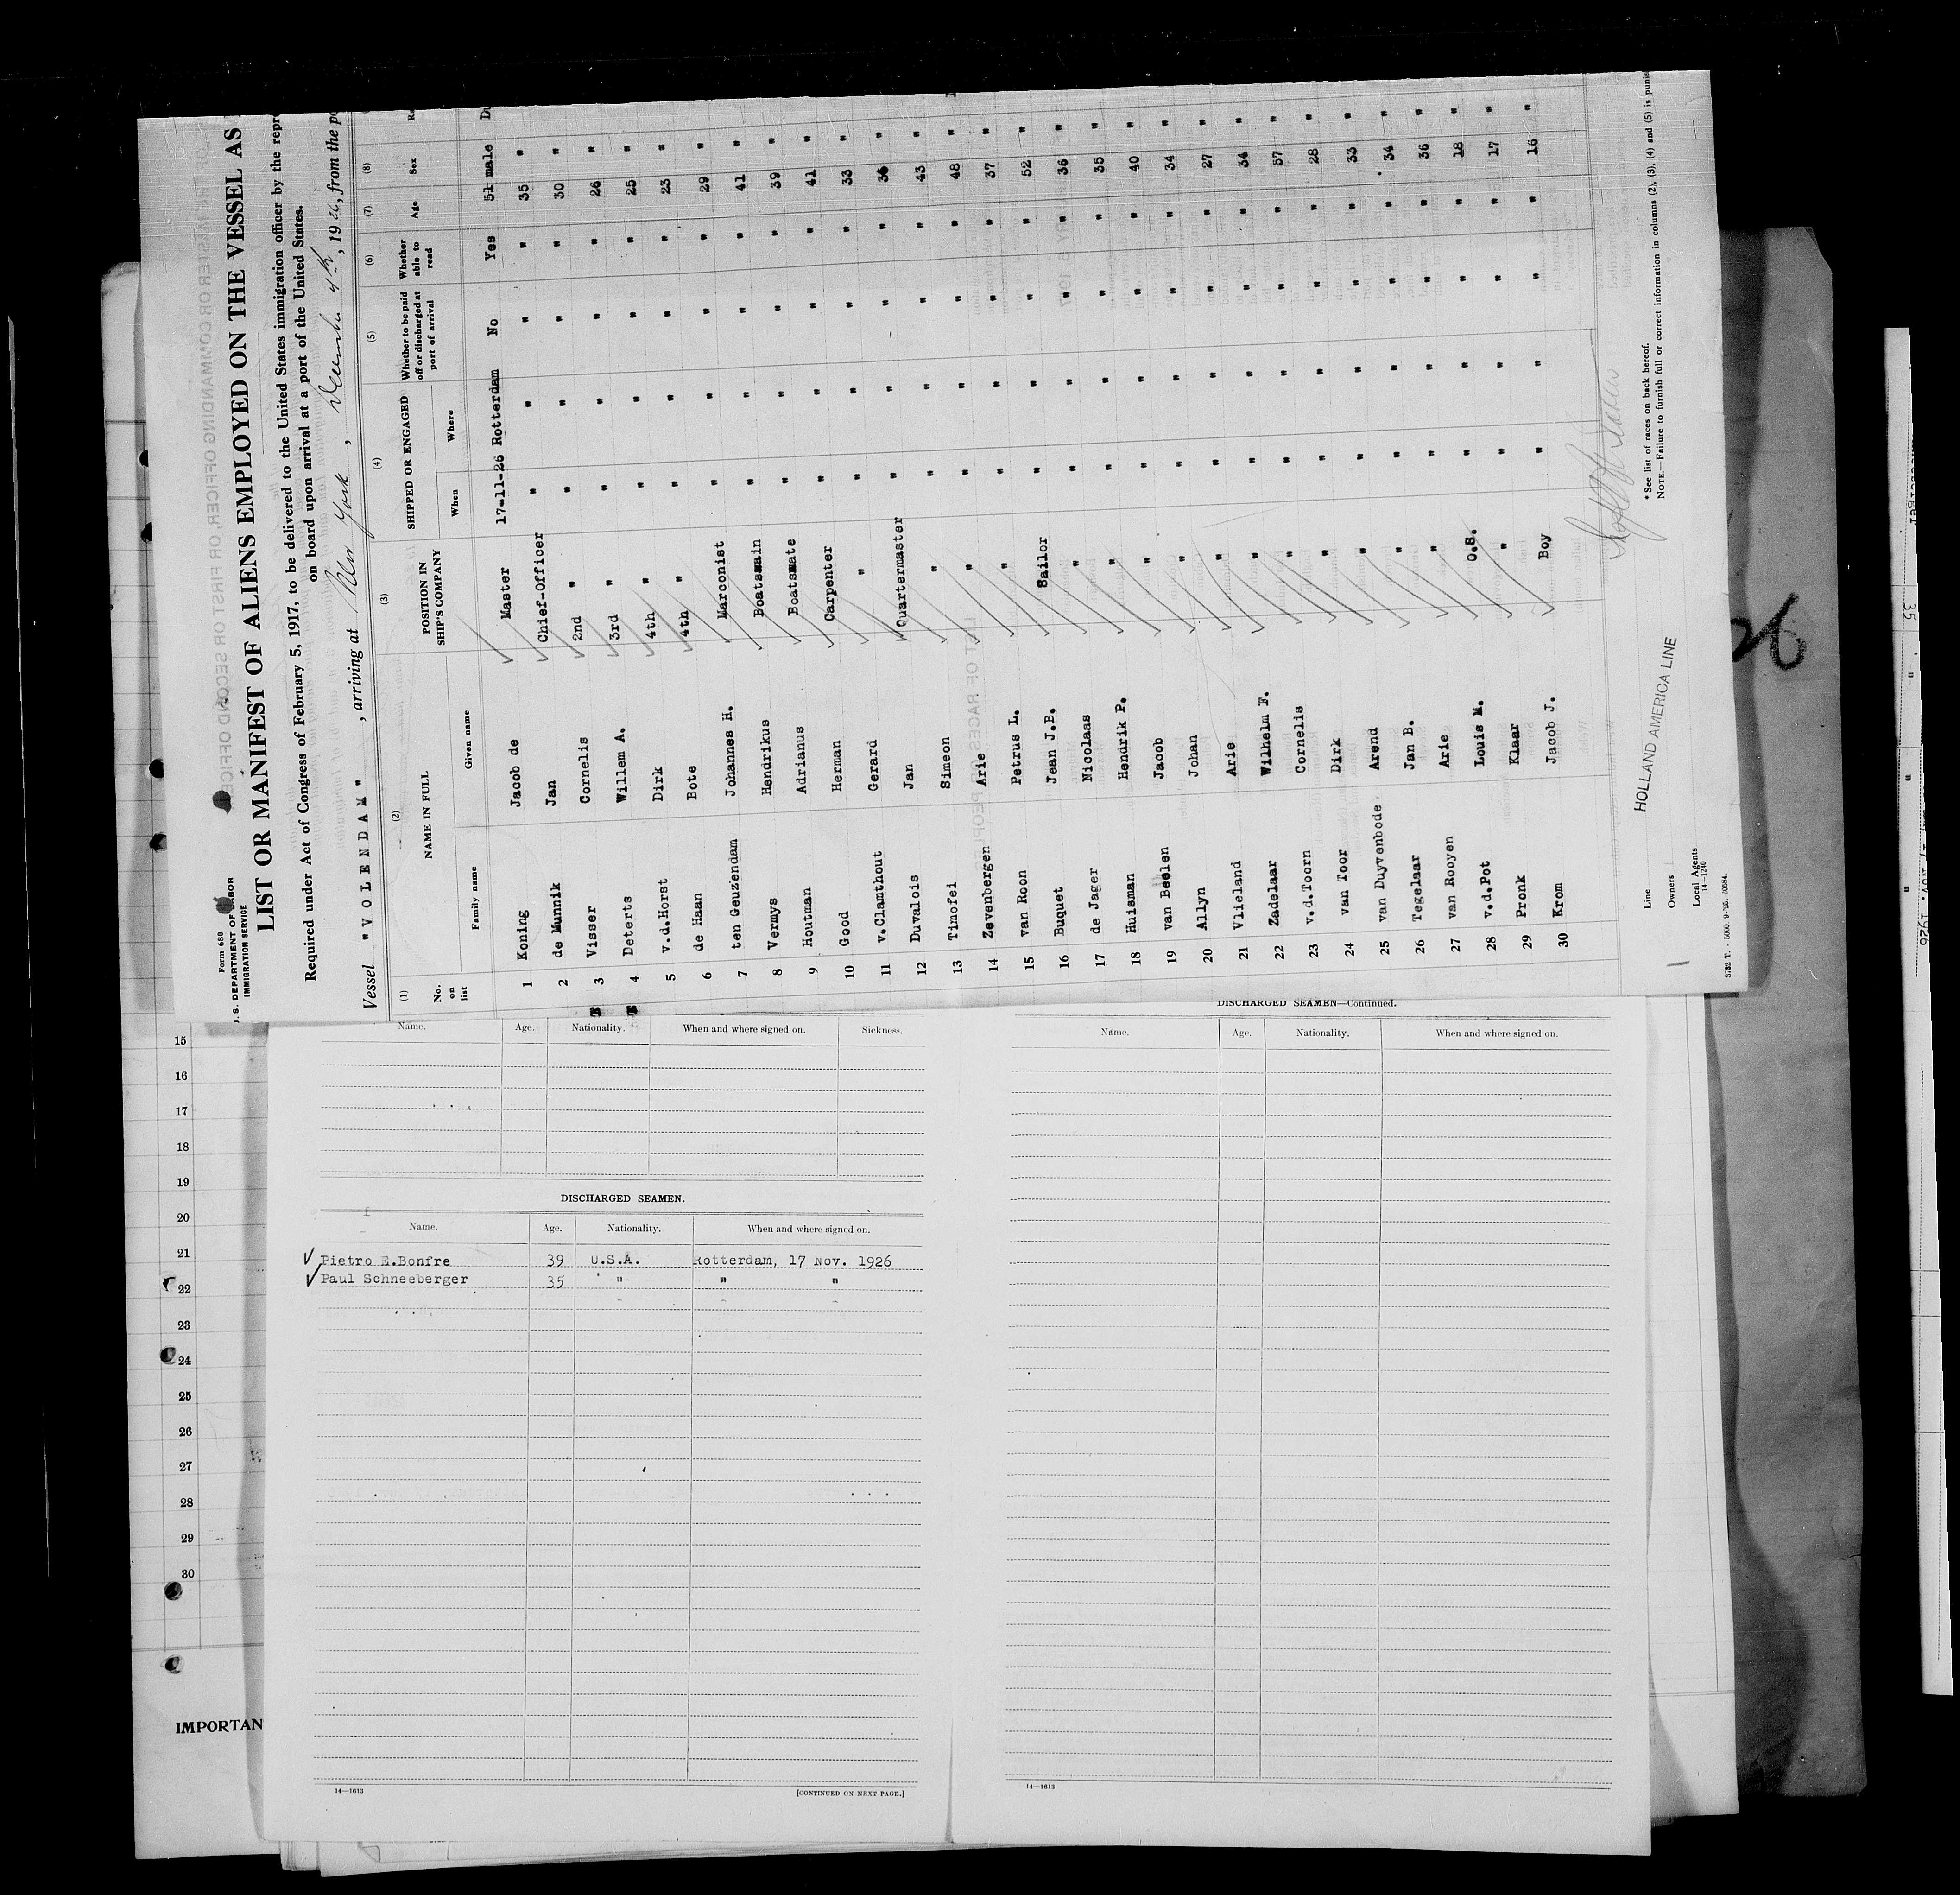 Form 680
U.S. DEPARTMENT OF LABOR
IMMIGRATION SERVICE
LIST OR MANIFEST OF ALIENS EMPLOYED ON THE VESSEL AS
Required under Act of Congress of February 5, 1917, to be delivered to the United States immigration officer by the repre
on board upon arrival at a port of the United States.
Vessel "VOLENDAM", arriving at New York, December 4th, 1926, from the po
(1) (2) (3) (4) (5) (6) (7) (8)
No. on list NAME IN FULL POSITION IN SHIP'S COMPANY SHIPPED OR ENGAGED Whether to be paid off or discharged at port of arrival Whether able to read Age Sex
Family name Given name When Where
1 Koning Jacob de Master 17-11-26 Rotterdam No Yes 51 male Du
2 de Munnik Jan Chief-Officer " " " " 35 "
3 Visser Cornelis 2nd " " " " " 30 "
4 Deterts Willem A. 3rd " " " " " 26 "
5 v.d.Horst Dirk 4th " " " " " 25 "
6 de Haan Bote 4th " " " " " 23 "
7 ten Geuzendam Johannes H. Marconist " " " " 29 "
8 Vermys Hendrikus Boatswain " " " " 41 "
9 Houtman Adrianus Boatsmate " " " " 39 "
10 Good Herman Carpenter " " " " 41 "
11 v.Clamthout Gerard " " " " " 33 "
12 Duvalois Jan Quartermaster " " " " 36 "
13 Timofei Simeon " " " " " 43 "
14 Zevenbergen Arie " " " " " 48 "
15 van Roon Petrus L. " " " " " 37 "
16 Buquet Jean J.B. Sailor " " " " 52 "
17 de Jager Nicolaas " " " " " 36 "
18 Huisman Hendrik P. " " " " " 35 "
19 van Beelen Jacob " " " " " 40 "
20 Allyn Johan " " " " " 34 "
21 Vlieland Arie " " " " " 27 "
22 Zadelaar Wilhelm F. " " " " " 34 "
23 v.d.Toorn Cornelis " " " " " 57 "
24 van Toor Dirk " " " " " 28 "
25 van Duyvenbode Arend " " " " " 33 "
26 Tegelaar Jan B. " " " " " 34 "
27 van Rooyen Arie " " " " " 36 "
28 v.d.Pot Louis M. O.S. " " " " 18 "
29 Pronk Klaar " " " " " 17 "
30 Krom Jacob J. Boy " " " " 16 "
Line HOLLAND AMERICA LINE
Owners
Local Agents
14-1240
* See list of races on back hereof.
NOTE.—Failure to furnish full or correct information in columns (2), (3), (4) and (5) is punis
Name. Age. Nationality. When and where signed on. Sickness.
DISCHARGED SEAMEN.
Name. Age. Nationality. When and where signed on.
Pietro E.Bonfre 39 U.S.A. Rotterdam, 17 Nov. 1926
Paul Schneeberger 35 " " "
14—1613
[CONTINUED ON NEXT PAGE.]
DISCHARGED SEAMEN—Continued.
Name. Age. Nationality. When and where signed on.
14—1613
15
16
17
18
19
20
21
22
23
24
25
26
27
28
29
30
IMPORTAN
26
35